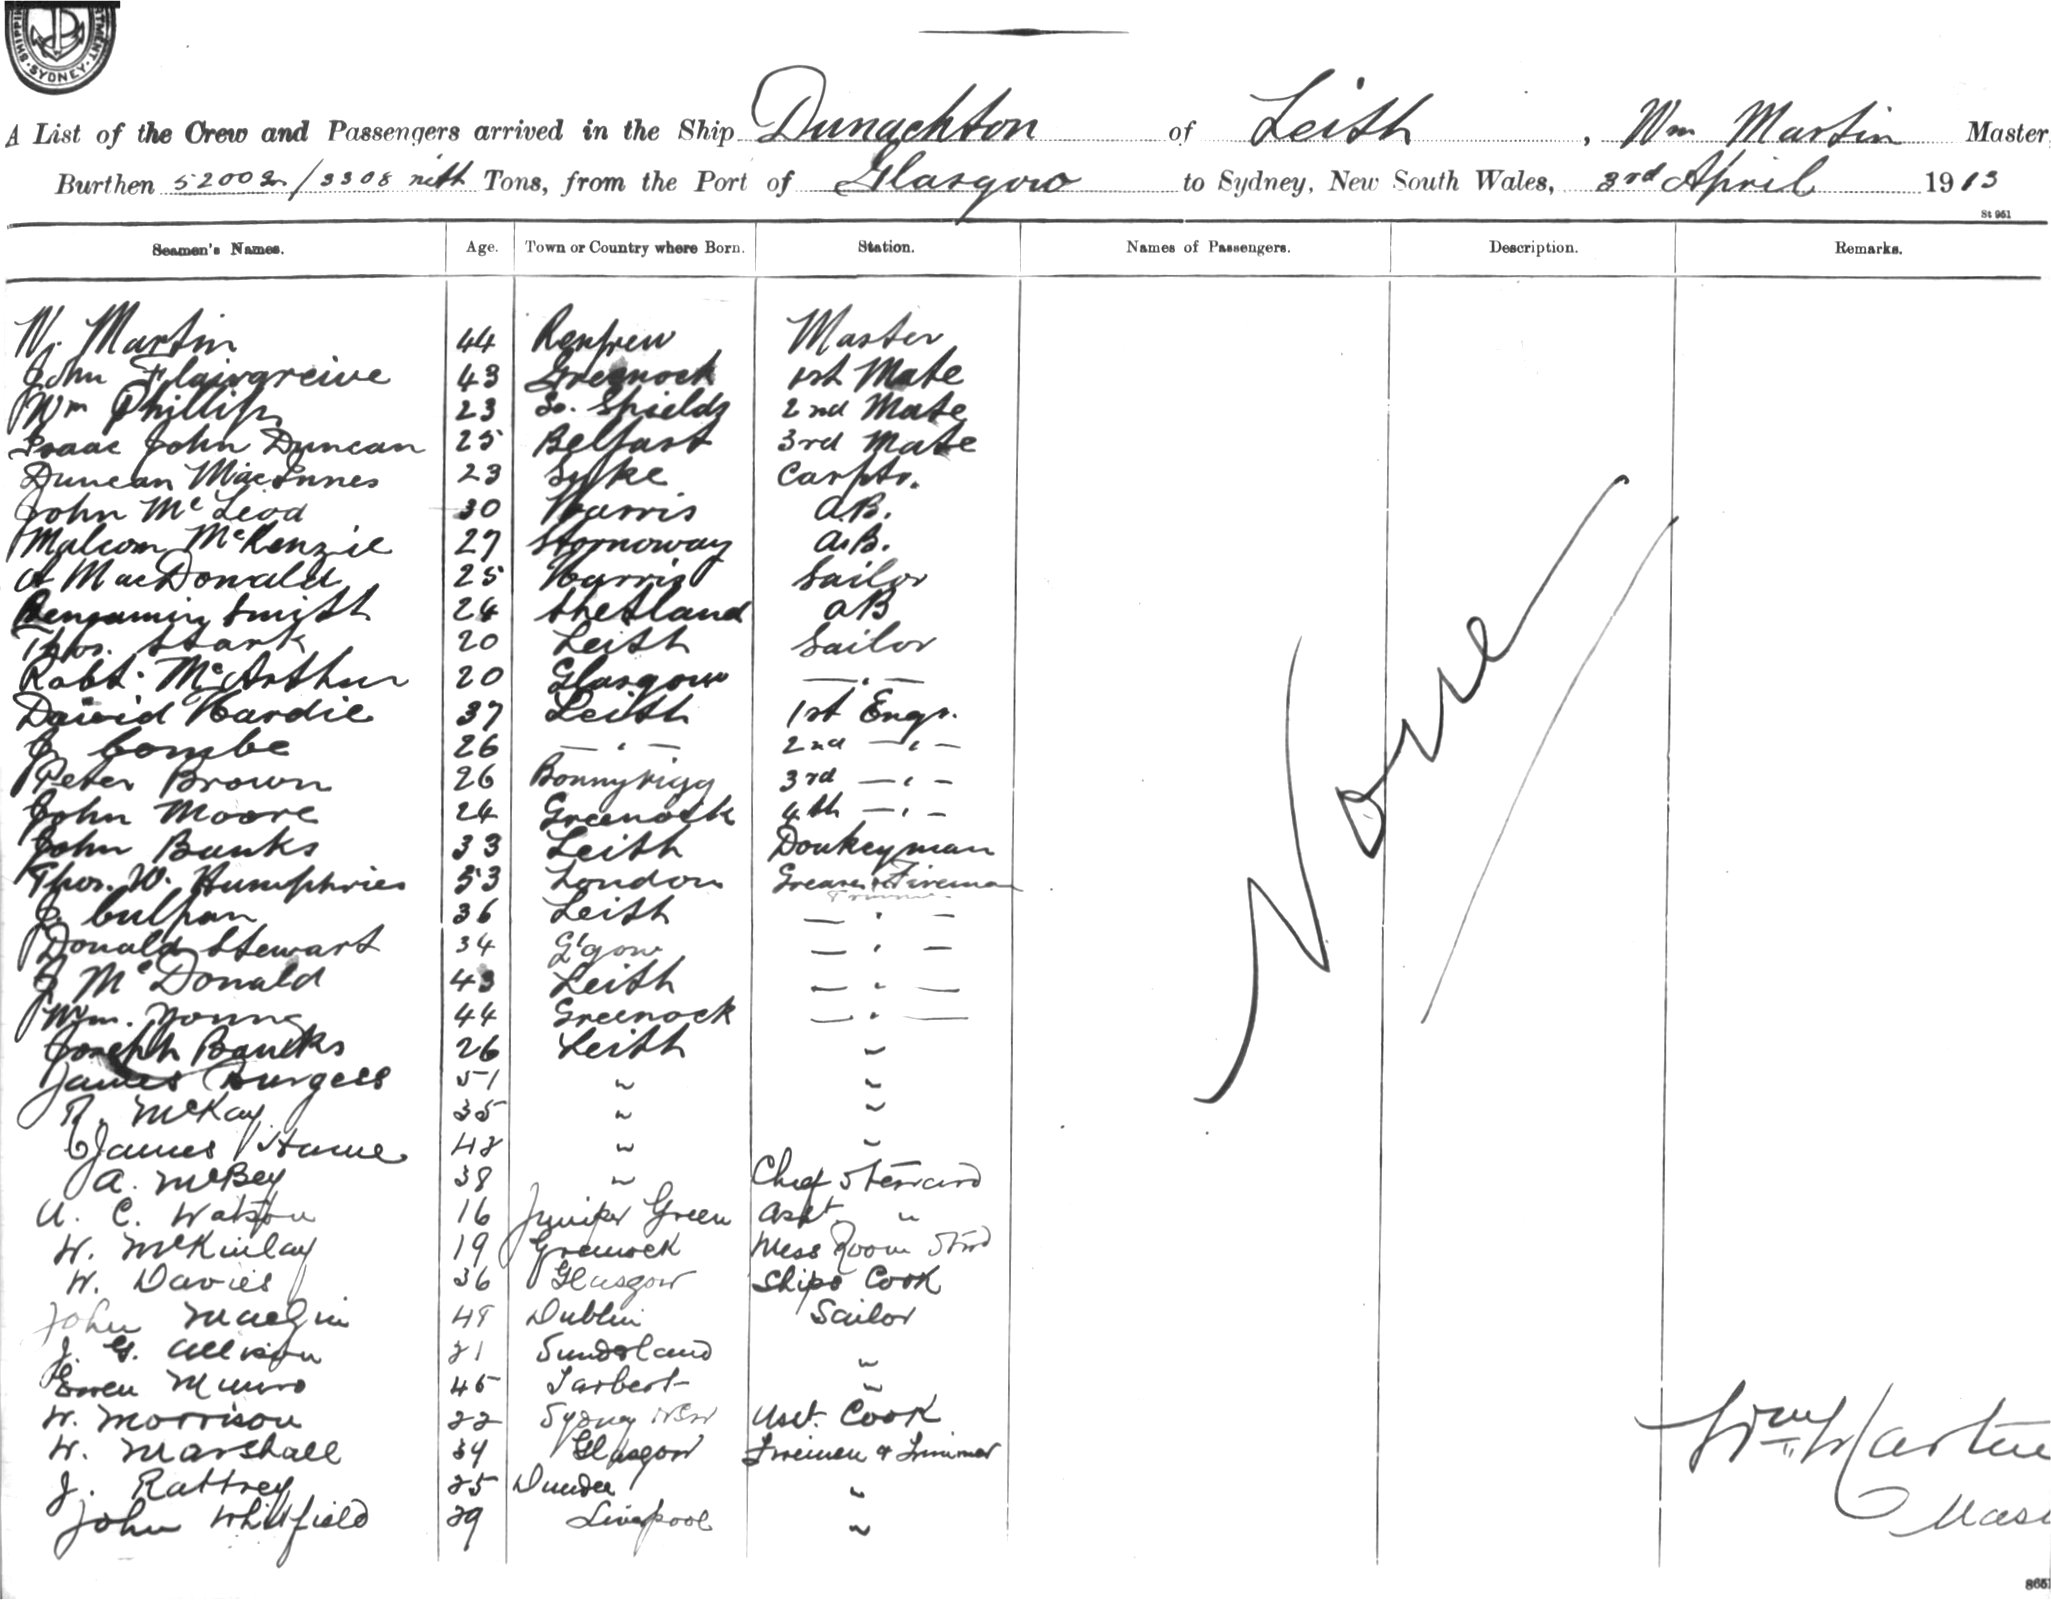 SYDNEY
A List of the Crew and Passengers arrived in the Ship Dunachton of Leith, Wm Martin Master
Burthen 5200 / 3308 Tons, from the Port of Glasgow to Sydney, New South Wales, 3rd April 1913
St 951
Seamen's Names. Age. Town or Country where Born. Station. Names of Passengers. Description. Remarks.
W. Martin 44 Renfrew Master
John Flairgreive 43 Greenock 1st Mate
Wm Phillips 23 So. Shields 2nd Mate
Isaac John Duncan 25 Belfast 3rd Mate
Duncan MacInnes 23 Syke Carptr.
John McLeod 30 Harris A.B.
Malcom McKenzie 27 Stornoway A.B.
A MacDonald 25 Harris Sailor
Benjamin Smith 24 Shetland AB
Thos. Stark 20 Leith Sailor
Robt. McArthur 20 Glasgow — . —
David Hardie 37 Leith 1st Engr.
J. Combe 26 — " — 2nd — " —
Peter Brown 26 Bonnyrigg 3rd — " —
John Moore 24 Greenock 4th — " —
John Banks 33 Leith Donkeyman
Thos. W. Humphries 53 London Greaser & Fireman
J. Culpan 36 Leith — " —
Donald Stewart 34 G'gow — " —
J McDonald 43 Leith — " —
Wm. Young 44 Greenock — " —
Joseph Bancks 26 Leith "
James Burgess 51 " "
R. McKay 35 " "
James Hume 48 " "
A. McBey 38 " Chief Steward
A. C. Watson 16 Juniper Green Asst "
W. McKinlay 19 Greenock Mess Room Stwd
W. Davies 36 Glasgow Ships Cook
John 49 Dublin Sailor
J. G. Allison 21 Sunderland "
Ewen Munro 45 Tarbert "
W. Morrison 22 Sydney NSW Asst. Cook
W. Marshall 34 Glasgow Fireman & Trimmer
J. Rattrey 25 Dundee "
John Whitfield 29 Liverpool "
None
Wm Martin
Mas
865